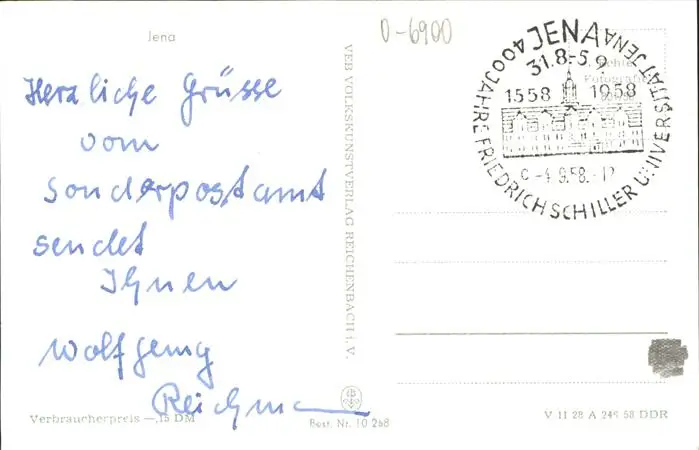 Jena
Herzliche Grüsse
vom
Sonderpostamt
sendet
Ihnen
Wolfgang
Verbraucherpreis —,15 DM
VEB VOLKSKUNSTVERLAG REICHENBACH i. V.
Best. Nr. 10 268
O-6900
JENA
31.8.-5.9.
1558 1958
-4.9.58.-12
400 JAHRE FRIEDRICH SCHILLER UNIVERSITÄT JENA
V 11 28 A 245 58 DDR